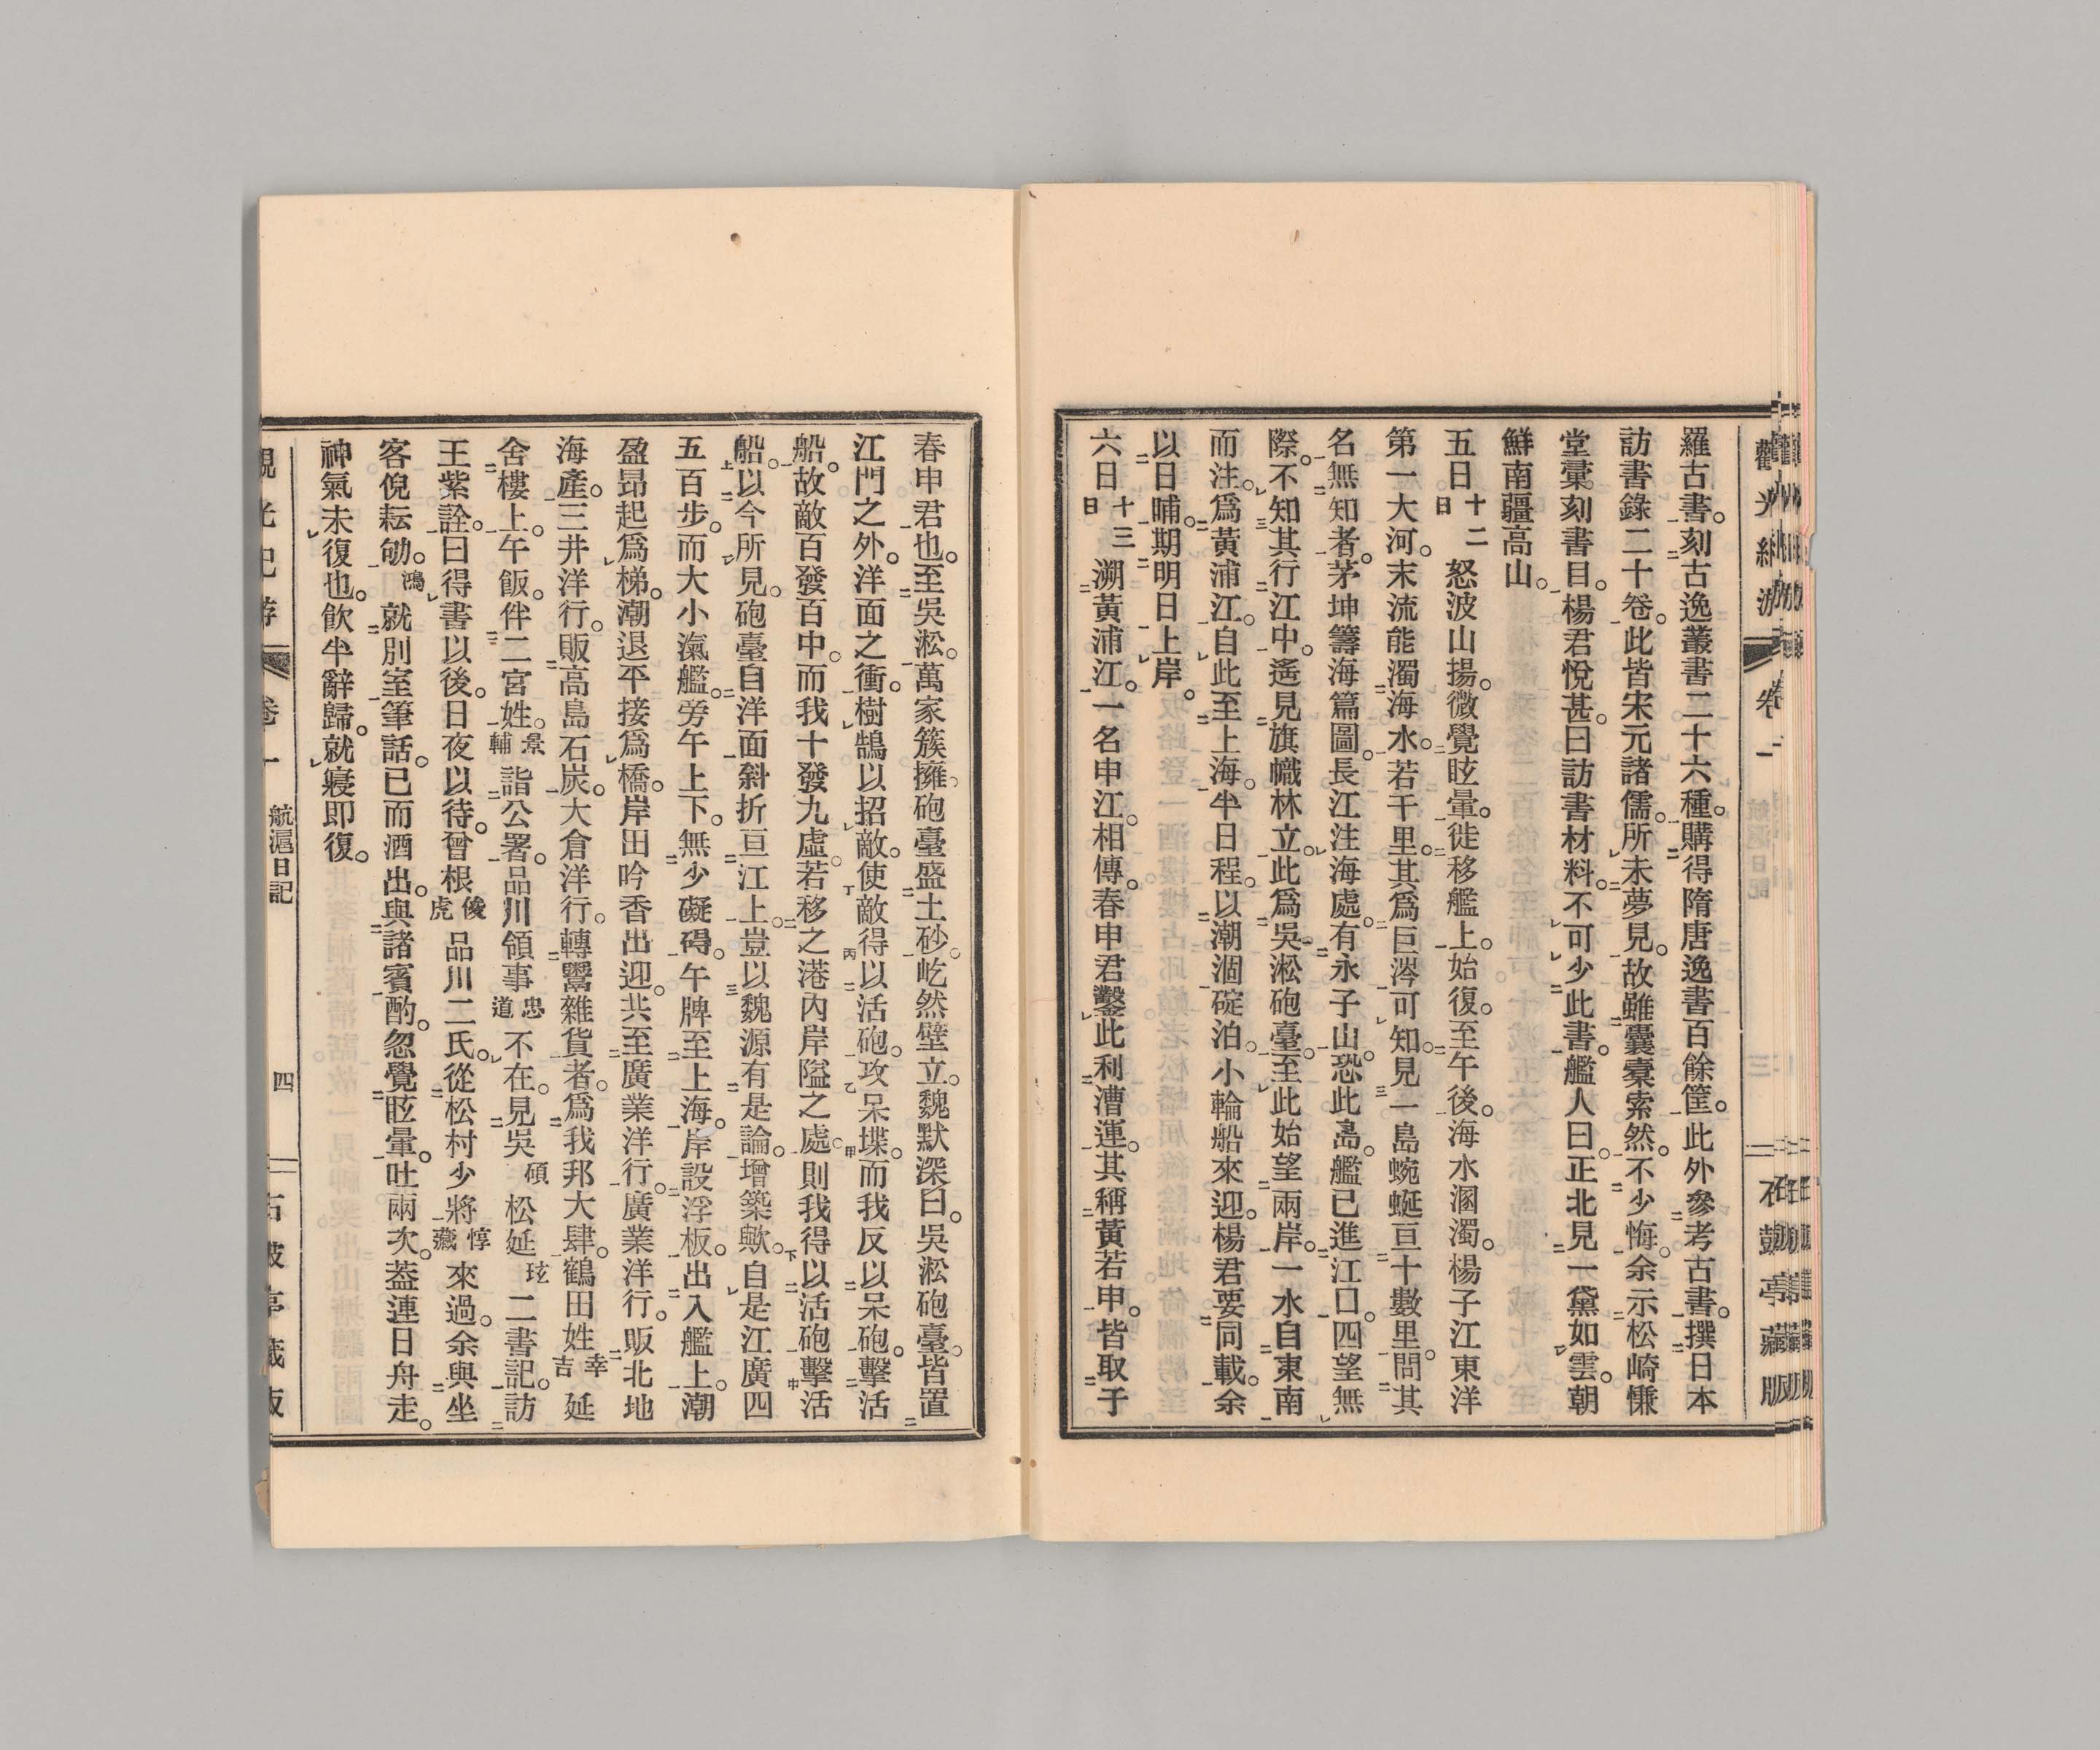 羅古書。刻古逸叢書二十六種。購得隋唐逸書百餘筐。此外參考古書。撰日本
訪書錄二十卷。此皆宋元諸儒。所未夢見。故雖囊槖索然。不少悔。余示松崎慊
堂彙刻書目。楊君悅甚。曰訪書材料。不可少此書。艦人曰。正北見一黛如雲。朝
鮮南疆高山。
五日十二日怒波山揚。微覺眩暈。徙移艦上。始復。至午後。海水溷濁。楊子江東洋
第一大河。末流能濁海水。若干里。其爲巨涔可知。見一島蜿蜒亘十數里。問其
名無知者。茅坤籌海篇圖。長江注海處。有永子山。恐此島。艦已進江口。四望無
際。不知其行江中。遙見旗幟林立。此爲吳淞砲臺。至此始望兩岸。一水自東南
而注。爲黃浦江。自此至上海。半日程。以潮涸碇泊。小輪船來迎。楊君要同載。余
以日晡。期明日上岸。
六日十三日溯黃浦江。一名申江。相傳。春申君鑿此利漕運。其稱黃若申。皆取于
春申君也。至吳淞。萬家簇擁。砲臺盛土砂。屹然壁立。魏默深曰。吳淞砲臺。皆置
江門之外。洋面之衝。樹鵠以招敵。使敵得以活砲。攻呆堞。而我反以呆砲。擊活
船。故敵百發百中。而我十發九虛。若移之港內岸隘之處。則我得以活砲擊活
船。以今所見。砲臺自洋面斜折亘江上。豈以魏源有是論。增築歟。自是江廣四
五百步。而大小瀛艦。旁午上下。無少礙碍。午牌至上海。岸設浮板。出入艦上。潮
盈昂起爲梯。潮退平接爲橋。岸田吟香出迎。共至廣業洋行。廣業洋行。販北地
海產。三井洋行。販高島石炭。大倉洋行。轉鬻雜貨者。爲我邦大肆。鶴田姓幸吉延
舍樓上。午飯。伴二宮姓。景輔詣公署。品川領事忠道不在。見吳碩松延玹二書記。訪
王紫詮。曰得書以後。日夜以待。曾根俊虎品川二氏。從松村少將惇藏來過。余與坐
客倪耘劬。鴻就別室筆話。已而酒出。與諸賓酌。忽覺眩暈。吐兩次。葢連日舟走。
神氣未復也。飮半辭歸。就寢即復。
卷一 航滬日記 四